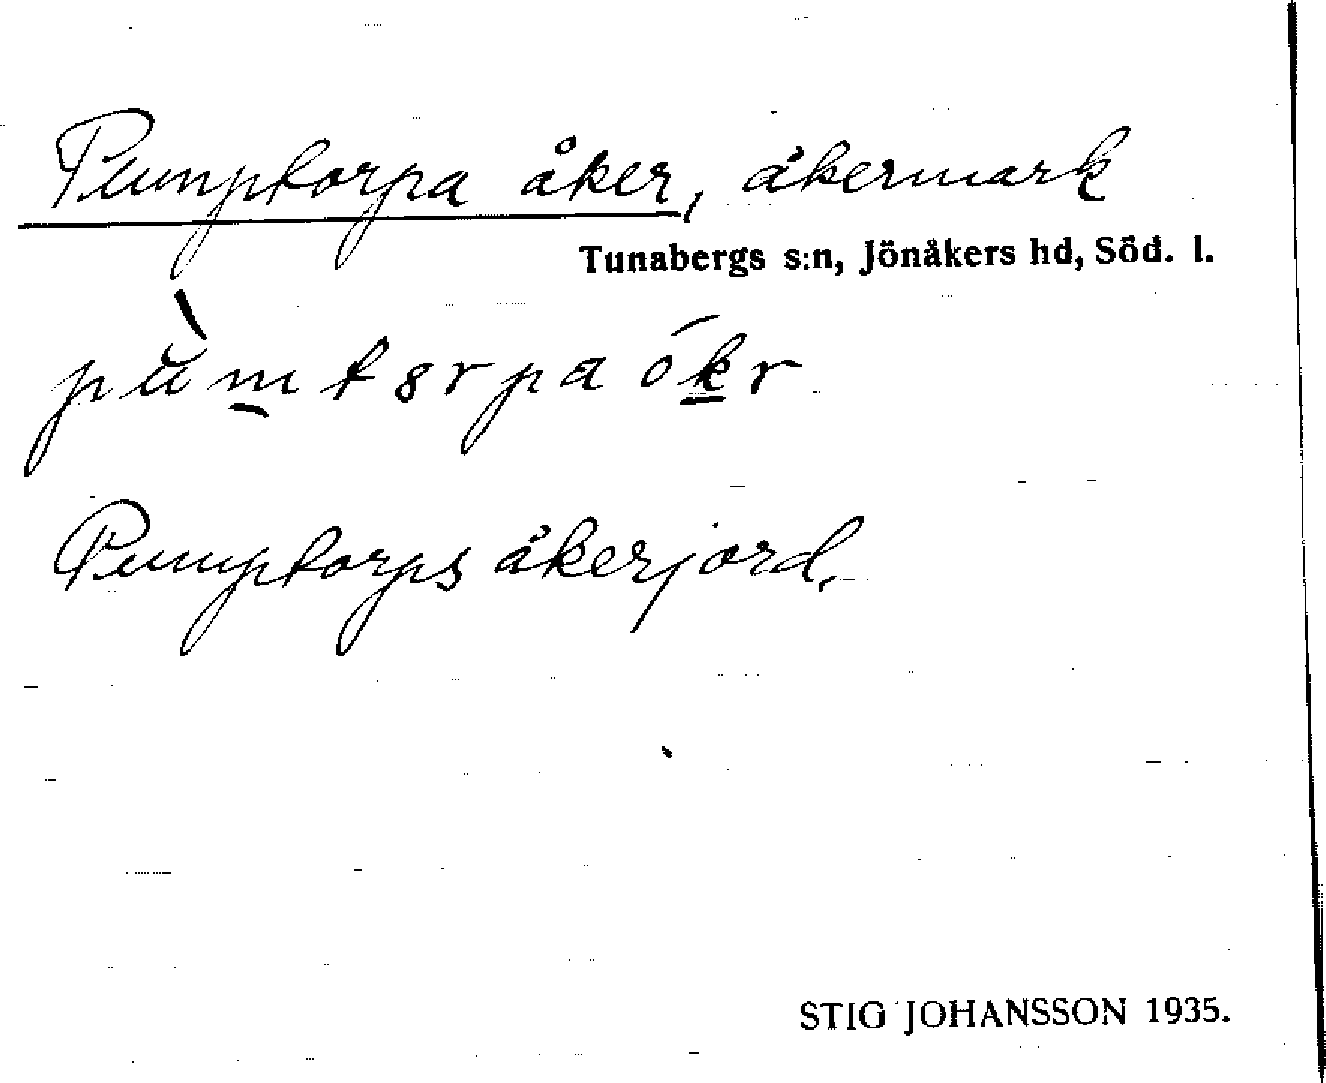 Pumptorpa åker, åkermark
Tunabergs s:n, Jönåkers hd, Söd. l.
pùmt8rpa ókr
Pumptorps åkerjord.
STIG JOHANSSON 1935.